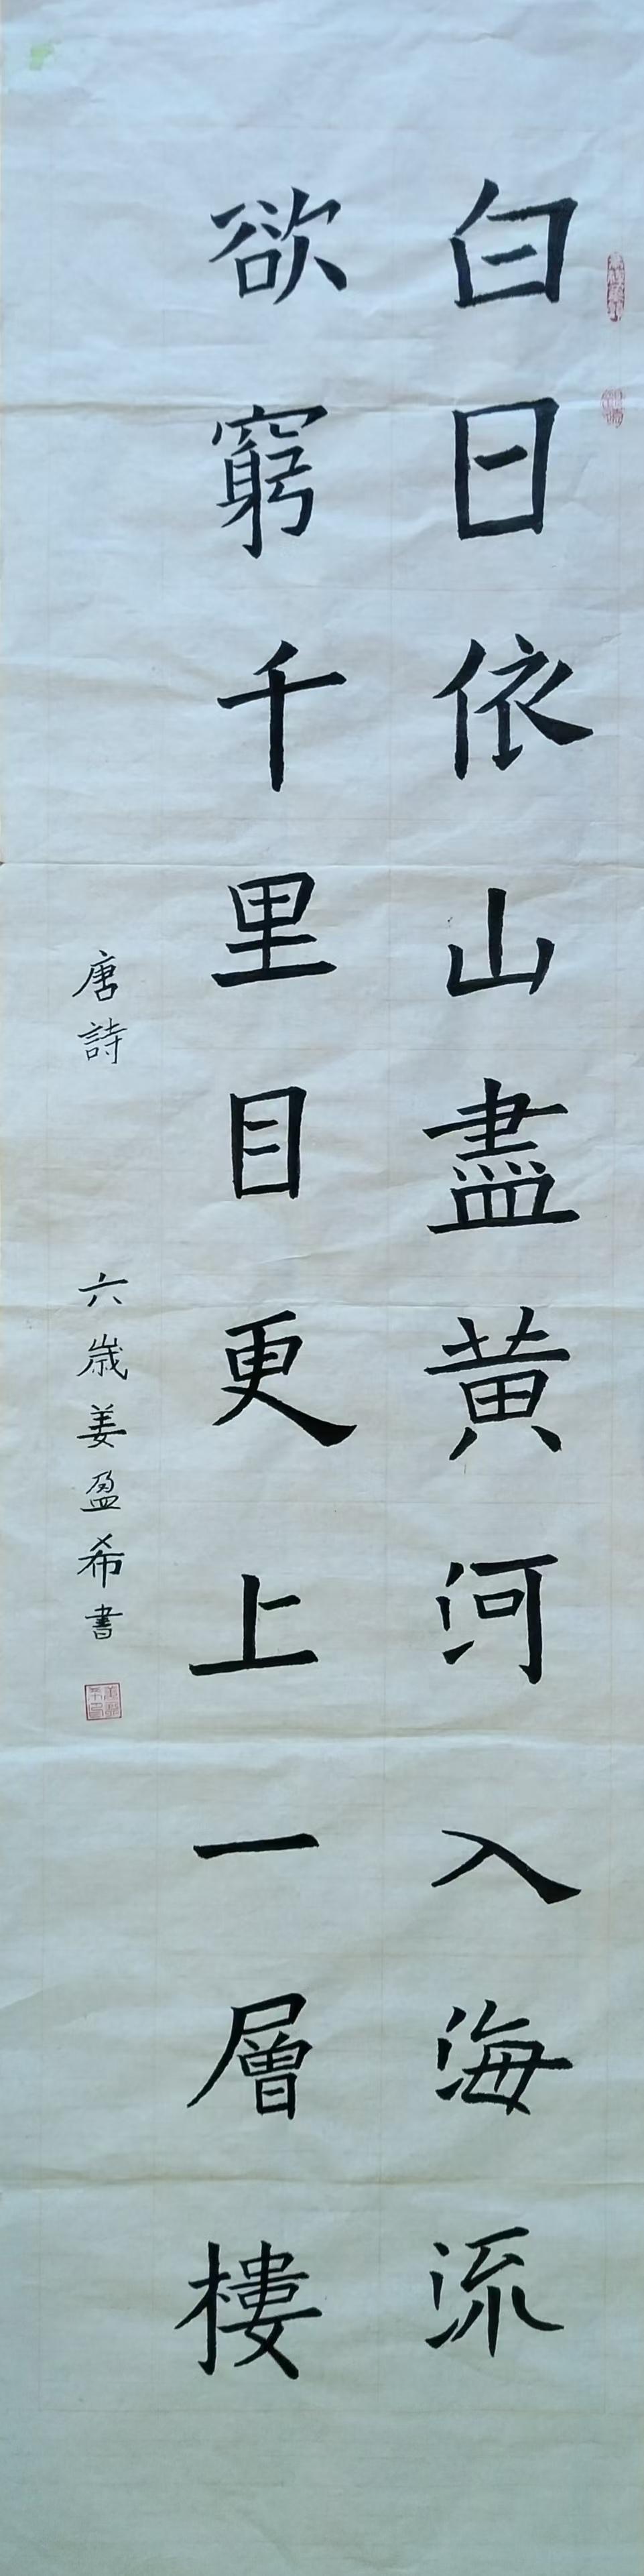 白日依山盡黄河入海流
欲窮千里目更上一層樓
唐詩 六歲姜盈希書